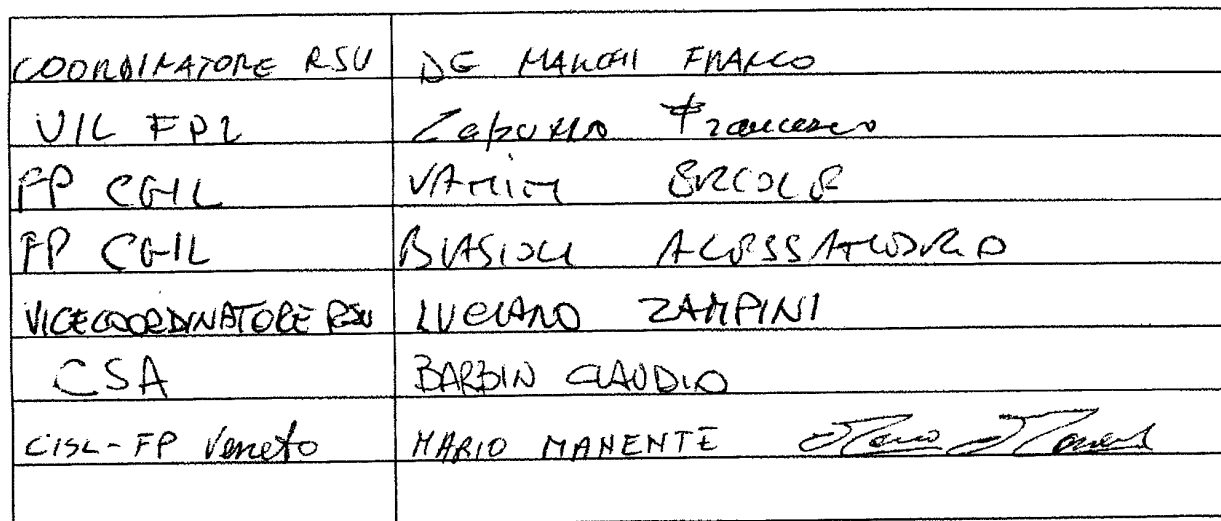 COORDINATORE RSU DE MARCHI FRANCO
UIL FPL Zapulla Francesco
FP CGIL VANINI ERCOLE
FP CGIL BIASIOLI ALESSANDRO
VICECOORDINATORE RSU LUCIANO ZAMPINI
CSA BARBIN CLAUDIO
CISL-FP Veneto MARIO MANENTE Mario Manente